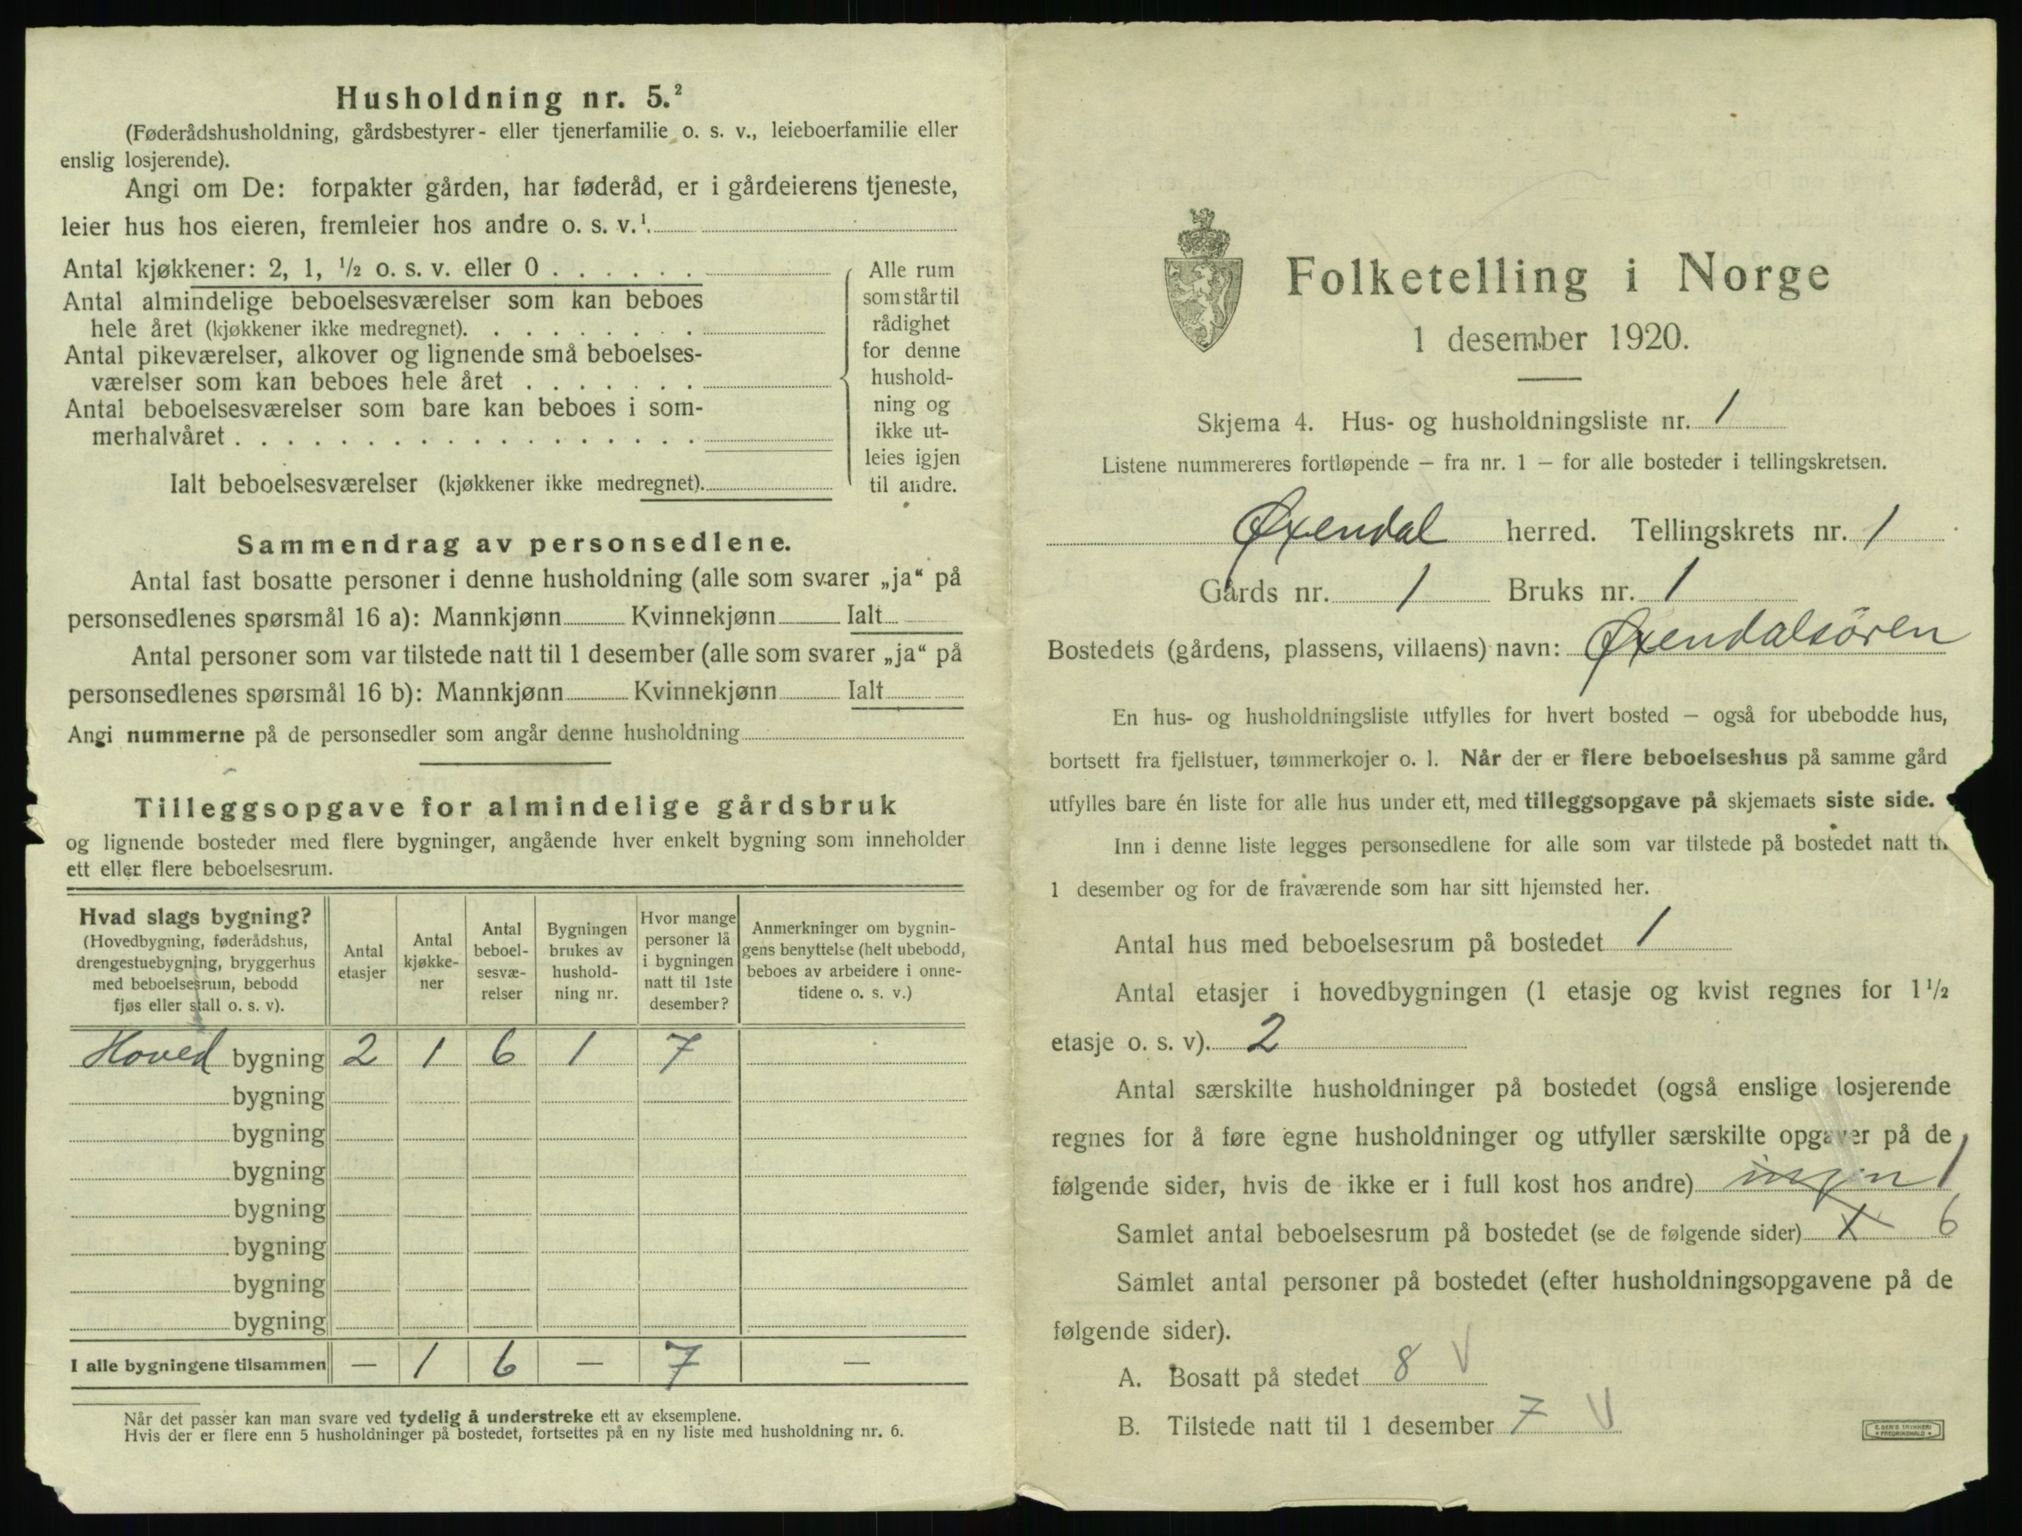 Husholdning nr. 5.²
(Føderådshusholdning, gårdsbestyrer- eller tjenerfamilie o. s. v., leieboerfamilie eller
enslig losjerende).
Angi om De: forpakter gården, har føderåd, er i gårdeierens tjeneste,
leier hus hos eieren, fremleier hos andre o. s. v.¹
Antal kjøkkener: 2, 1, ½ o. s. v. eller 0 . . . . . .
Antal almindelige beboelsesværelser som kan beboes
hele året (kjøkkener ikke medregnet). . . . . . . . .
Antal pikeværelser, alkover og lignende små beboelses-
værelser som kan beboes hele året . . . . . . .
Antal beboelsesværelser som bare kan beboes i som-
merhalvåret . . . . . . . . . . . . . . . . . .
Ialt beboelsesværelser (kjøkkener ikke medregnet).
Alle rum
som står til
rådighet
for denne
hushold-
ning og
ikke ut-
leies igjen
til andre.
Sammendrag av personsedlene.
Antal fast bosatte personer i denne husholdning (alle som svarer „ja“ på
personsedlenes spørsmål 16 a): Mannkjønn Kvinnekjønn Ialt
Antal personer som var tilstede natt til 1 desember (alle som svarer „ja“ på
personsedlenes spørsmål 16 b): Mannkjønn Kvinnekjønn Ialt
Angi nummerne på de personsedler som angår denne husholdning
Tilleggsopgave for almindelige gårdsbruk
og lignende bosteder med flere bygninger, angående hver enkelt bygning som inneholder
ett eller flere beboelsesrum.
Hvad slags bygning?
(Hovedbygning, føderådshus,
drengestuebygning, bryggerhus
med beboelsesrum, bebodd
fjøs eller stall o. s. v).
Antal
etasjer
Antal
kjøkke-
ner
Antal
beboel-
sesvæ-
relser
Bygningen
brukes av
hushold-
ning nr.
Hvor mange
personer lå
i bygningen
natt til 1ste
desember?
Anmerkninger om bygnin-
gens benyttelse (helt ubebodd,
beboes av arbeidere i onne-
tidene o. s. v.)
Hoved bygning 2 1 6 1 7
bygning
bygning
bygning
bygning
bygning
bygning
bygning
I alle bygningene tilsammen — 1 6 — 7 —
Når det passer kan man svare ved tydelig å understreke ett av eksemplene.
Hvis der er flere enn 5 husholdninger på bostedet, fortsettes på en ny liste med husholdning nr. 6.
Folketelling i Norge
1 desember 1920.
Skjema 4. Hus- og husholdningsliste nr. 1
Listene nummereres fortløpende – fra nr. 1 – for alle bosteder i tellingskretsen.
Øxendal herred. Tellingskrets nr. 1
Gårds nr. 1 Bruks nr. 1
Bostedets (gårdens, plassens, villaens) navn: Øxendalsören
En hus- og husholdningsliste utfylles for hvert bosted – også for ubebodde hus,
bortsett fra fjellstuer, tømmerkojer o. l. Når der er flere beboelseshus på samme gård
utfylles bare én liste for alle hus under ett, med tilleggsopgave på skjemaets siste side.
Inn i denne liste legges personsedlene for alle som var tilstede på bostedet natt til
1 desember og for de fraværende som har sitt hjemsted her.
Antal hus med beboelsesrum på bostedet 1
Antal etasjer i hovedbygningen (1 etasje og kvist regnes for 1½
etasje o. s. v). 2
Antal særskilte husholdninger på bostedet (også enslige losjerende
regnes for å føre egne husholdninger og utfyller særskilte opgaver på de
følgende sider, hvis de ikke er i full kost hos andre) ingen 1
Samlet antal beboelsesrum på bostedet (se de følgende sider) 1 6
Samlet antal personer på bostedet (efter husholdningsopgavene på de
følgende sider).
A. Bosatt på stedet 8 V
B. Tilstede natt til 1 desember 7 V